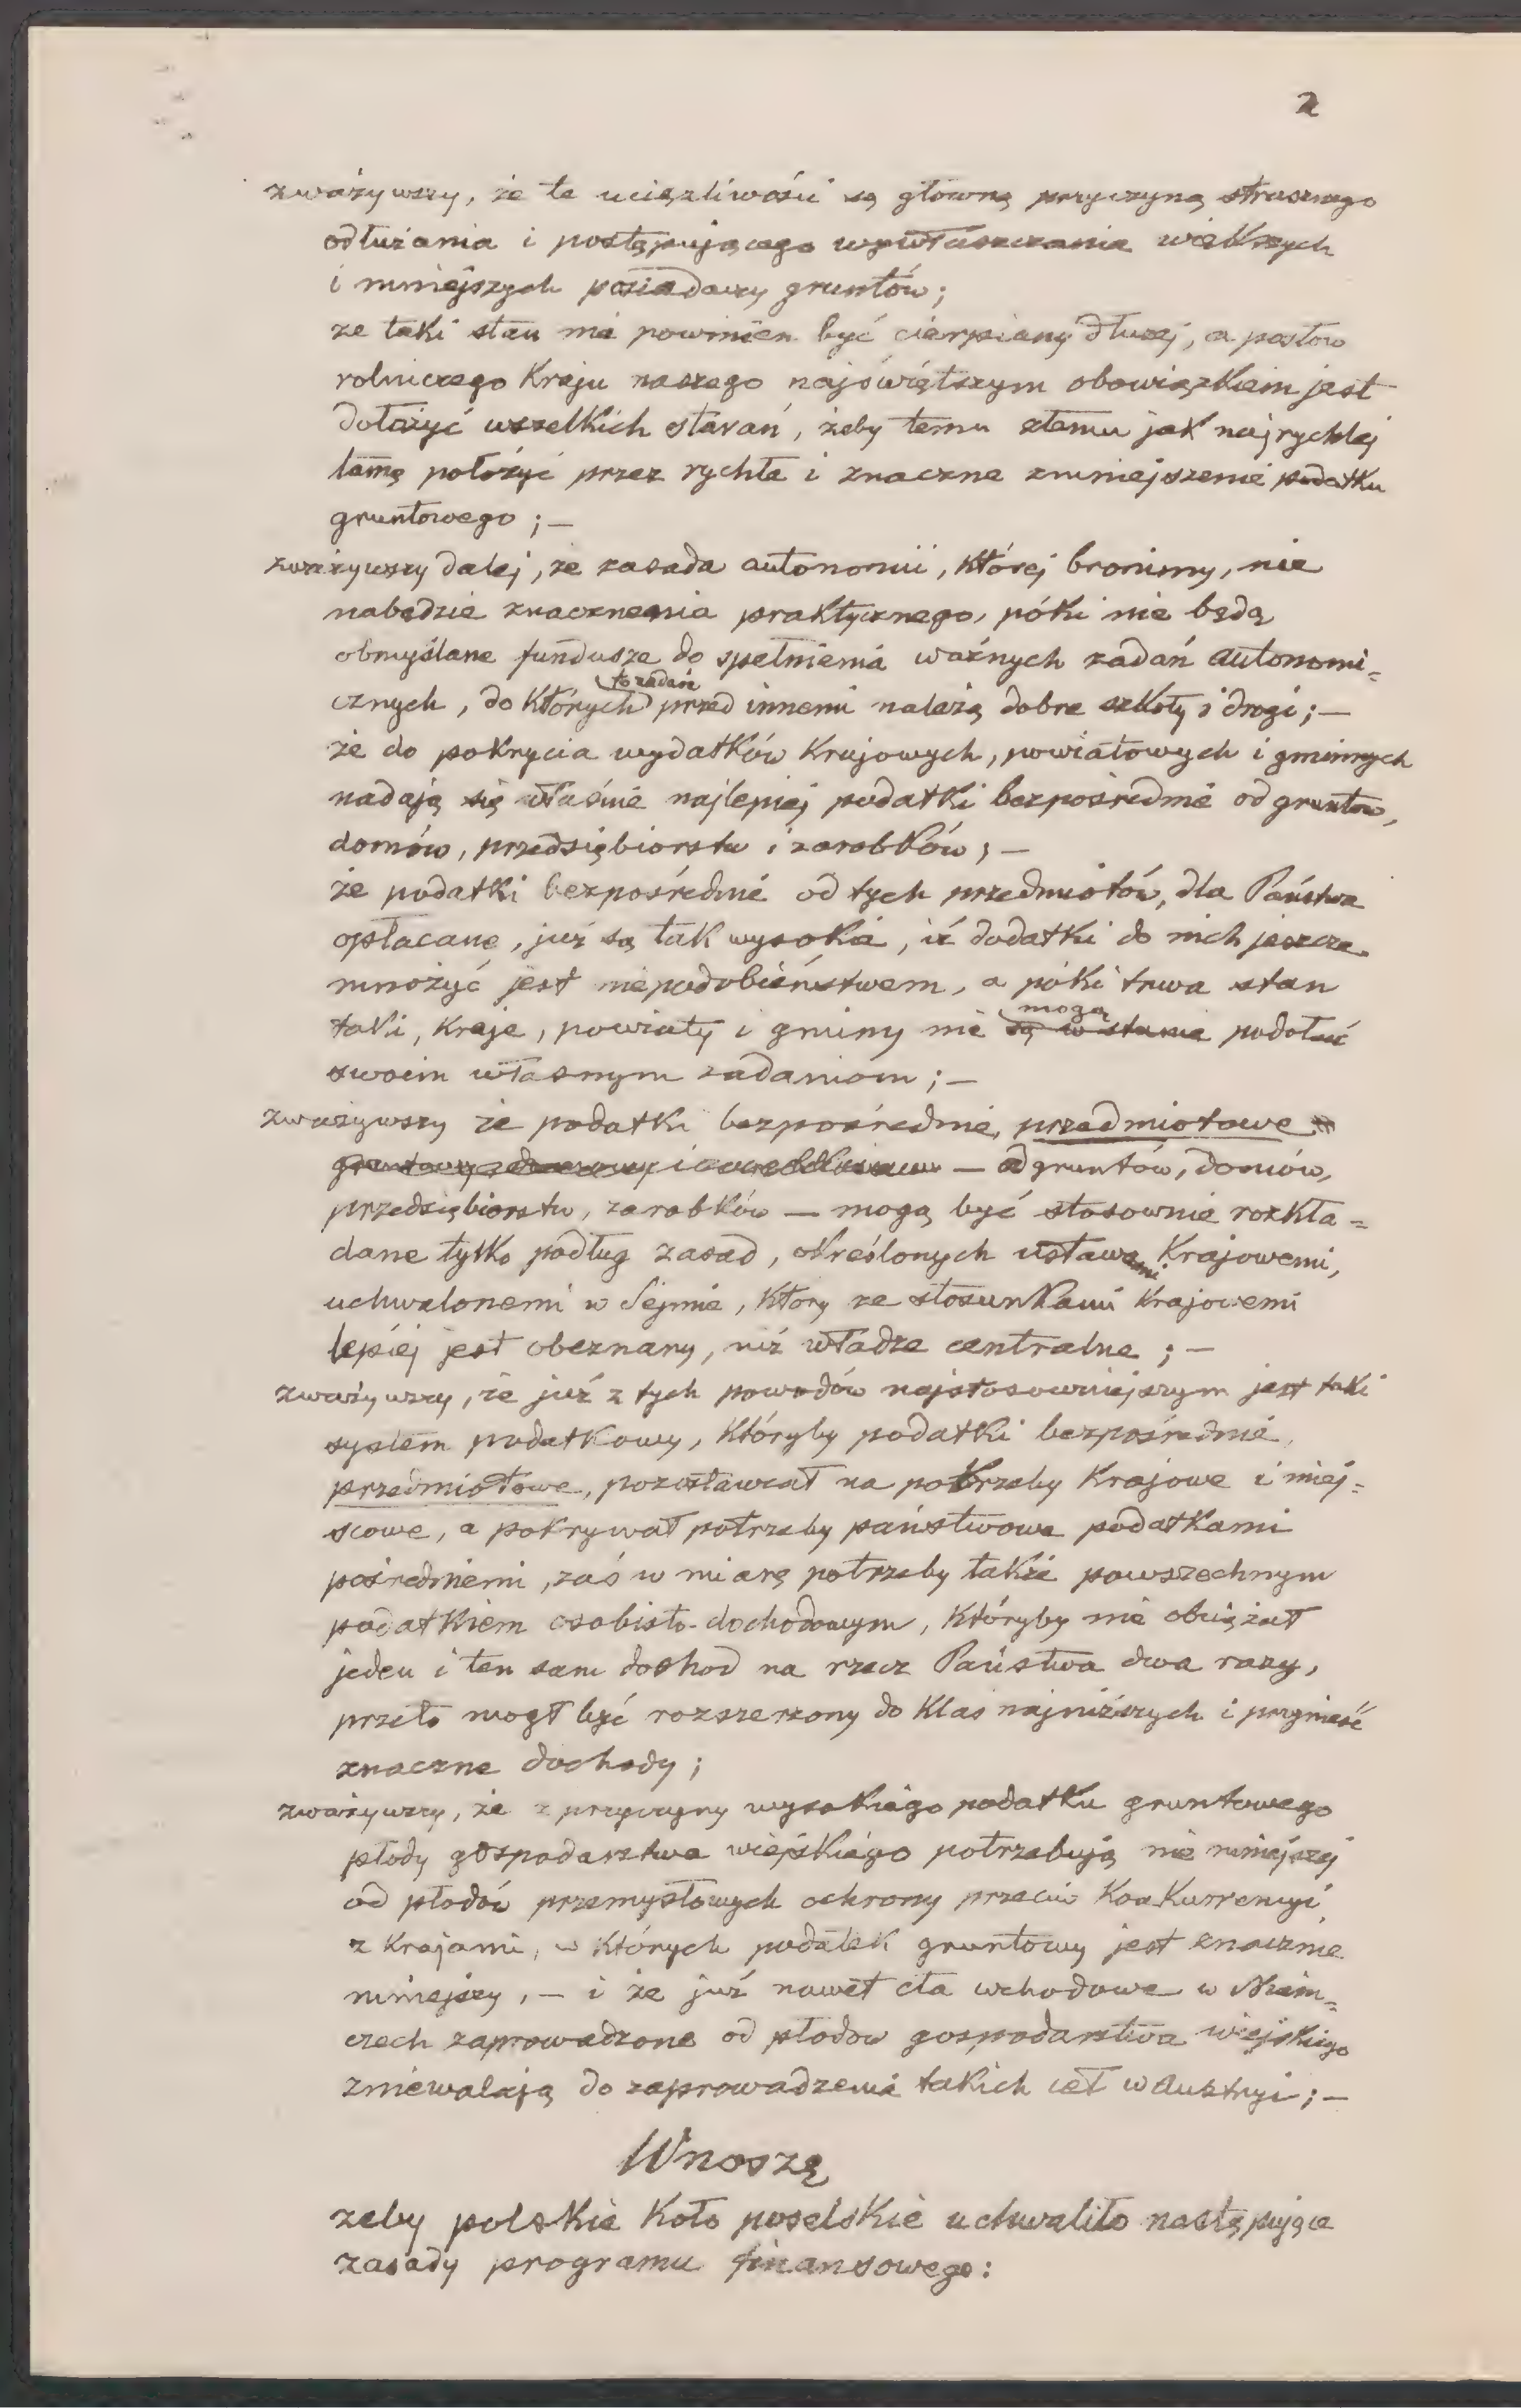 2
zważywszy, że te uciążliwości są główną przyczyną strasznego
odłużania i postępującego wywłaszczania większych
i mniejszych posiadaczy gruntów;
że taki stan nie powinien być cierpiany dłużej, a posłów
rolniczego Kraju naszego najświętszym obowiązkiem jest
dołożyć wszelkich starań, żeby temu złemu jak najrychlej
tamę położyć przez rychłe i znaczne zmniejszenie podatku
gruntowego; —
zważywszy dalej, że zasada autonomii, której bronimy, nie
nabędzie znaczenia praktycznego, póki nie będą
obmyślane fundusze do spełnienia ważnych zadań autonomi=
cznych, do których przed innemi należą dobre szkoły i drogi; —
że do pokrycia wydatków Krajowych, powiatowych i gminnych
nadają się właśnie najlepiej podatki bezpośrednie od gruntów,
domów, przedsiębiorstw i zarobków; —
że podatki bezpośrednie od tych przedmiotów, dla Państwa
opłacane, już są tak wysokie, iż dodatki do nich jeszcze
mnożyć jest niepodobieństwem, a póki trwa stan
taki, Kraje, powiaty i gminy nie są w stanie mogą podołać
swoim własnym zadaniom; —
zważywszy że podatki bezpośrednie, przedmiotowe
— od gruntów, domów,
przedsiębiorstw, zarobków — mogą być stosownie rozkła=
dane tylko podług zasad, określonych ustawami Krajowemi,
uchwalonemi w Sejmie, który ze stosunkami Krajowemi
lepiej jest obeznany, niż władze centralne; —
zważywszy, że już z tych powodów najstosowniejszym jest taki
system podatkowy, któryby podatki bezpośrednie,
przedmiotowe, pozostawiał na potrzeby Krajowe i miej=
scowe, a pokrywał potrzeby państwowe podatkami
pośredniemi, zaś w miarę potrzeby także powszechnym
podatkiem osobisto-dochodowym, któryby nie obciążał
jeden i ten sam dochod na rzecz Państwa dwa razy,
przeto mogł być rozszerzony do Klas najniższych i przynieść
znaczne dochody;
zważywszy, że z przyczyny wysokiego podatku gruntowego
płody gospodarstwa wiejskiego potrzebują nie mniejszej
od płodów przemysłowych ochrony przeciw Konkurrencyi
z Krajami, w których podatek gruntowy jest znacznie
mniejszy, — i że już nawet cła wchodowe w Niem=
czech zaprowadzone od płodów gospodarstwa wiejskiego
zniewalają do zaprowadzenia takich ceł w Austryi; —
Wnoszę
żeby polskie Koło poselskie uchwaliło następujące
zasady programu finansowego: